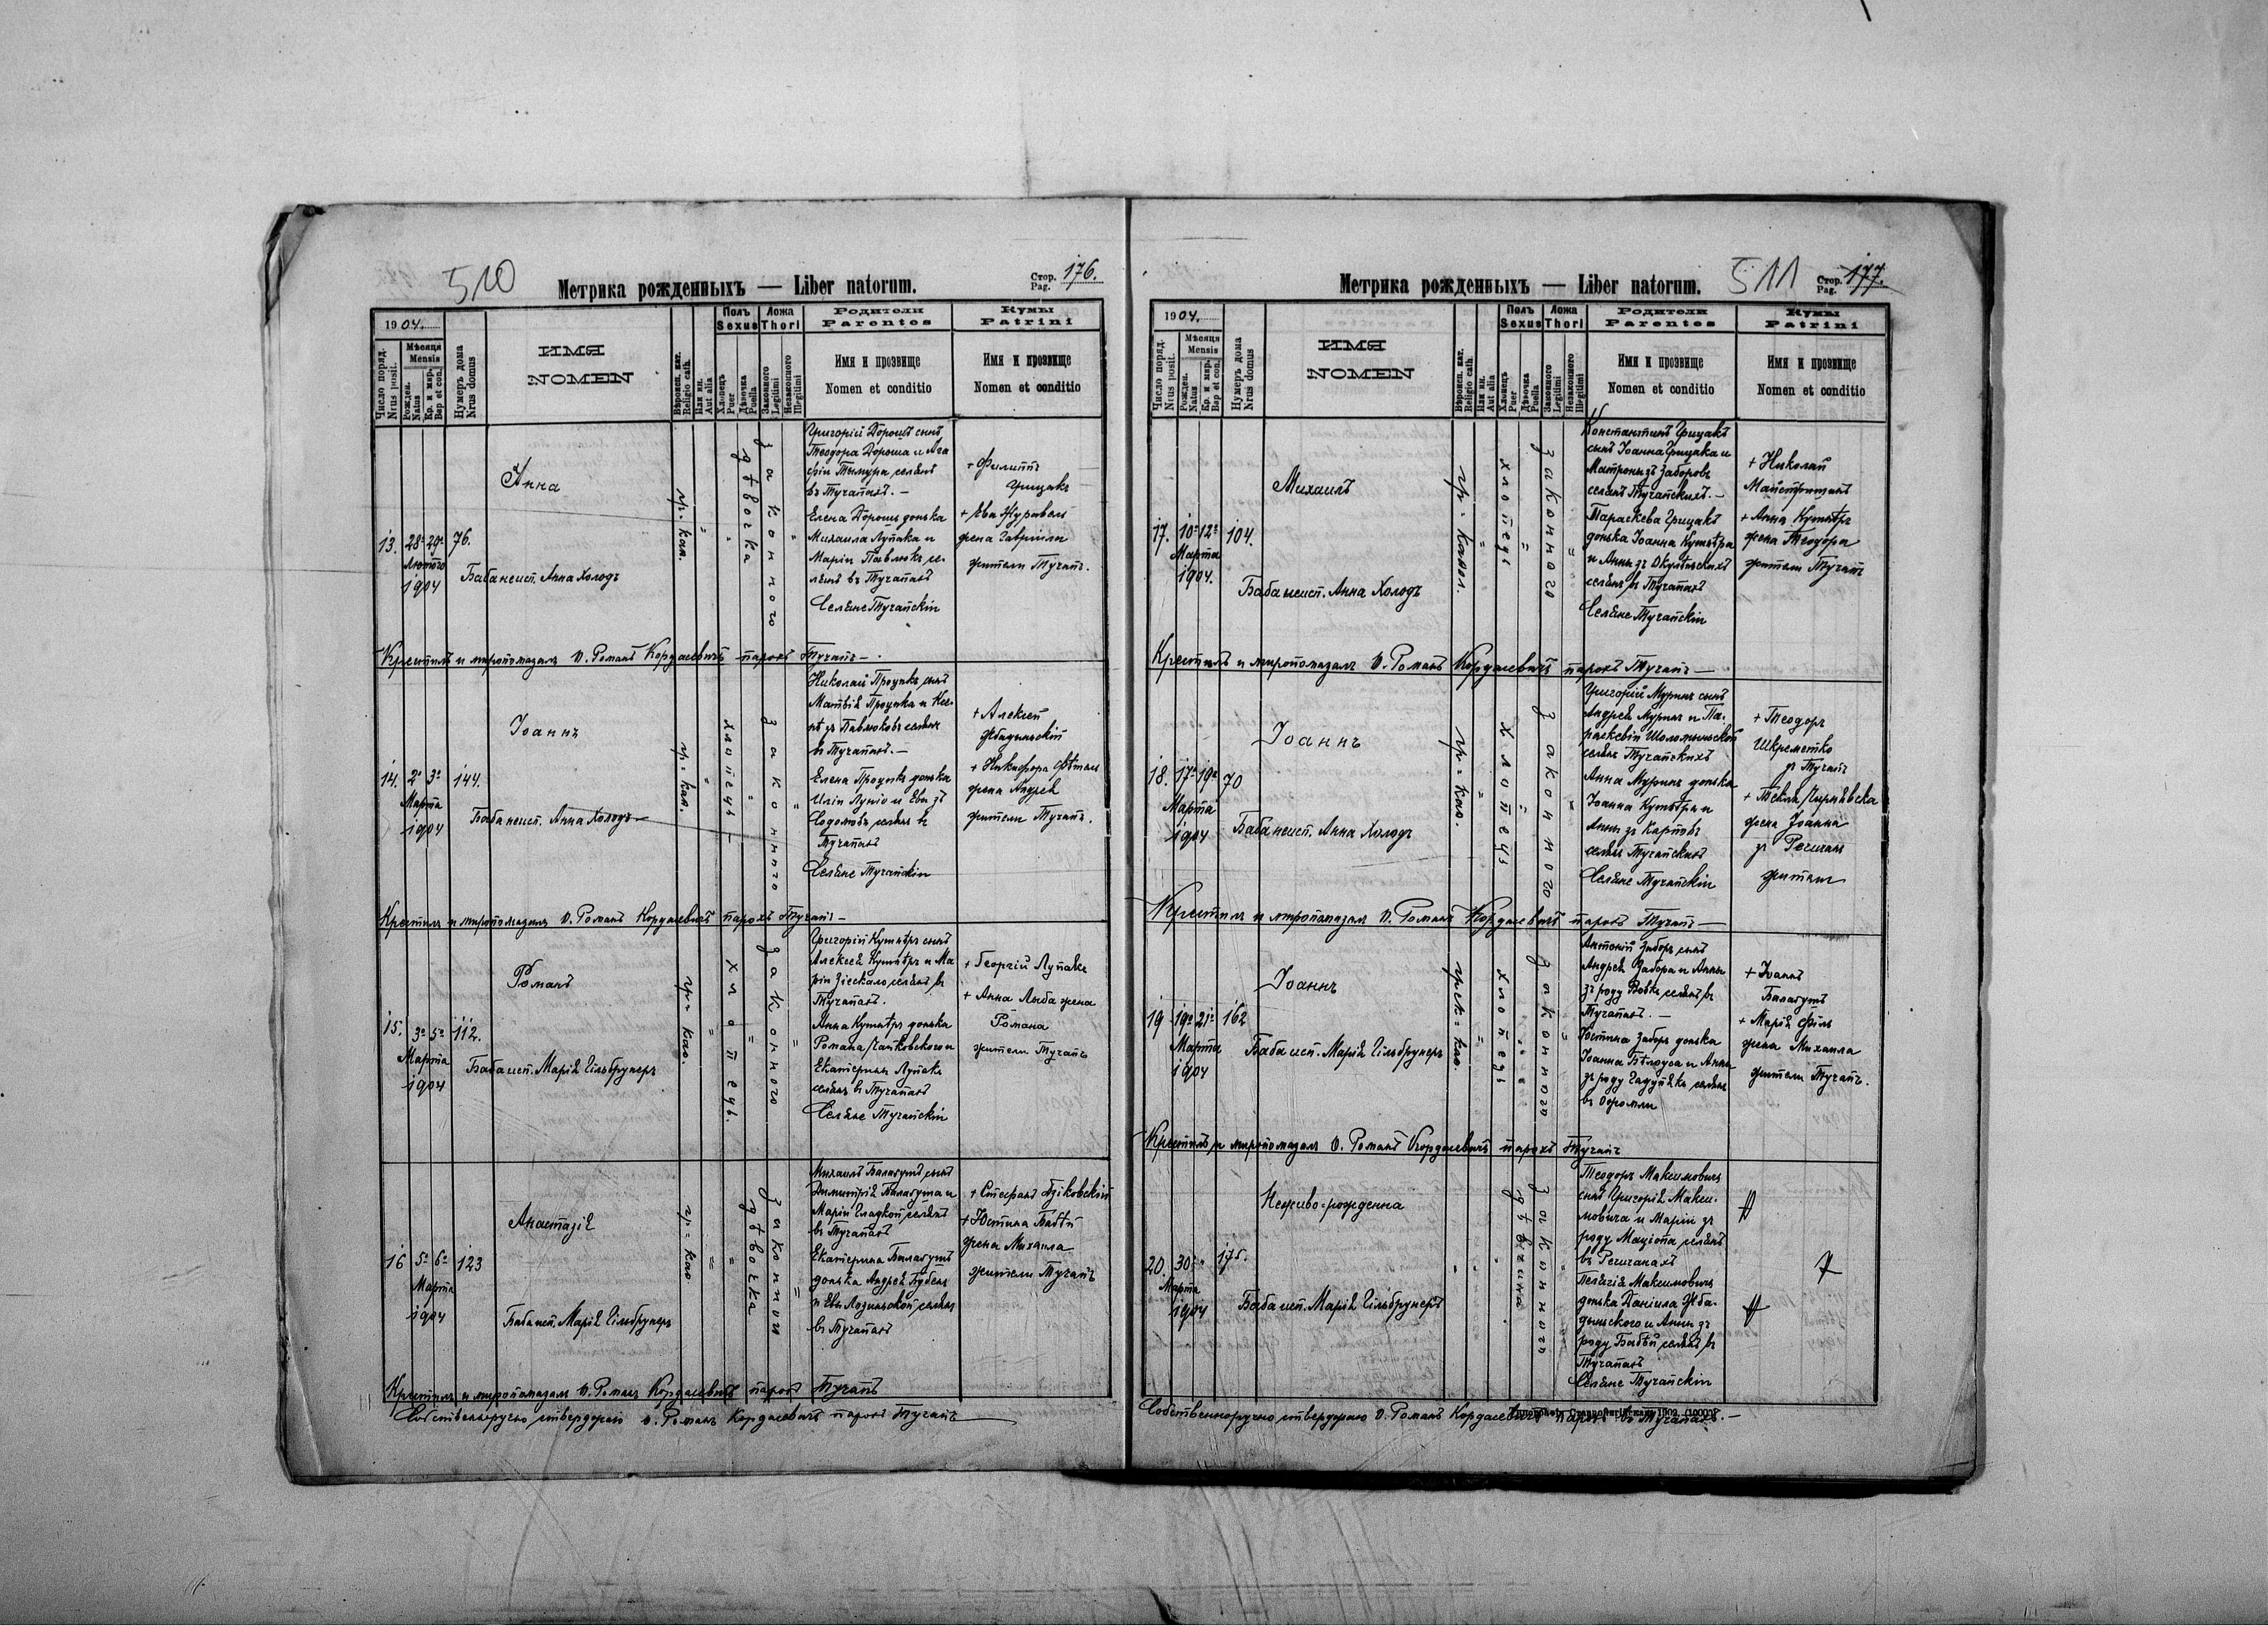 510
Метрика рожденныхъ — Liber natorum.
Стор. 176.
Pag.
1904.
Число поряд.
Nrus posit.
Мѣсяця
Mensis
Рожден.
Natus
Кр. и мир.
Bap et con.
Нумеръ дома
Nrus domus
ИМЯ
NOMEN
Вѣроисп. кат.
Religio cath.
Или ин.
Aut alia
Полъ
Sexus
Хлопець
Puer
Дѣвочка
Puella
Ложа
Thori
Законного
Legitimi
Незаконного
Illegitimi
Родители
Parentes
Имя и прозвище
Nomen et conditio
Кумы
Patrini
Имя и прозвище
Nomen et conditio
13.
28 29
Лютого
1904
76.
Анна
Баба неисп. Анна Холодъ
гр. кат.
дѣвочка
законного
Григорій Дорошъ сынъ
Теодора Дороша и Ага
фіи Тымура, селянъ
въ Тучапахъ. —
Елена Дорошъ донька
Михаила Лупака и
Маріи Павлюкъ се-
лянъ въ Тучапахъ
Селяне Тучапскіи
+ Филиппъ
Грицакъ
+ Ева Журавель
жена Гавріила
жители Тучапъ.
Крестилъ и миропомазалъ О. Романъ Кордасевичъ парохъ Тучапъ —
14.
2 3
Марта
1904
144.
Іоаннъ
Баба неисп. Анна Холодъ —
гр. кат.
хлопець —
законного
Николай Процикъ сынъ
Матвія Процика и Ксе-
ні зъ Павлюковъ селянъ
въ Тучапахъ. —
Елена Процикъ донька
Иліи Луціо и Евы зъ
Содомовъ селянъ въ
Тучапахъ
Селяне Тучапскіи
+ Алексей
Жбадыньскій
+ Никифора Фѣтьо
жена Андрея
жители Тучапъ.
Крестилъ и миропомазалъ О. Романъ Кордасевичъ парохъ Тучапъ —
15.
3 5
Марта
1904
112.
Романъ
Баба исп. Марія Гильбрунеръ
гр. кат.
хлопець.
законного
Григорій Кушнѣръ сынъ
Алексея Кушнѣръ и Ма
ріи селянъ въ
Тучапахъ.
Анна Кушнѣръ донька
Романа Чайковского и
Екатерины Лупакъ
селянъ въ Тучапахъ
Селяне Тучапскіи
+ Георгій Лупакъ
+ Анна Лыба жена
Романа
жители Тучапъ
16
5 6
Марта
1904
123
Анастазія
Баба исп. Марія Гильбрунеръ
гр. кат
дѣвочка
законного
Михаилъ Балагушъ сынъ
Димитрія Балагуша и
Маріи Гладкой селянъ
въ Тучапахъ
Екатерина Балагушъ
донька Андрея Бубель
и Евы Лозиньской селянъ
въ Тучапахъ
+ Стефанъ Бзіковскій
+ Юстина Бабѣй
жена Михаила
жители Тучапъ
Крестилъ и миропомазалъ О. Романъ Кордасевичъ парохъ Тучапъ
Собственноручно стверджаю о. Романъ Кордасевичъ парохъ Тучапъ
Метрика рожденныхъ — Liber natorum.
511
Стор. 177.
Pag.
1904.
Число поряд.
Nrus posit.
Мѣсяця
Mensis
Рожден.
Natus
Кр. и мир.
Bap et con.
Нумеръ дома
Nrus domus
ИМЯ
NOMEN
Вѣроисп. кат.
Religio cath.
Или ин.
Aut alia
Полъ
Sexus
Хлопець
Puer
Дѣвочка
Puella
Ложа
Thori
Законного
Legitimi
Незаконного
Illegitimi
Родители
Parentes
Имя и прозвище
Nomen et conditio
Кумы
Patrini
Имя и прозвище
Nomen et conditio
17.
10 12
Марта
1904.
104.
Михаилъ
Баба неисп. Анна Холодъ
гр. катол.
хлопець
законного
Константинъ Грицакъ
сынъ Іоанна Грицака и
Матроны зъ Заборовъ
селянъ Тучапскихъ. —
Параскева Грицакъ
донька Іоанна Кушнѣра
и Анны зъ
селянъ въ Тучапахъ
Селяне Тучапскіи
+ Николай
+ Анна Кушнѣръ
жена Теодора
жители Тучапъ
Крестилъ и миропомазалъ О. Романъ Кордасевичъ парохъ Тучапъ —
18.
17 19
Марта
1904
70
Іоаннъ
Баба неисп. Анна Холодъ
гр. кат.
хлопець
законного
Григорій Муринъ сынъ
Андрея Муринъ и Па-
раскевіи Шоломыньской
селянъ Тучапскихъ
Анна Муринъ донька
Іоанна Кушнѣръ и
Анны зъ Карповъ
селянъ Тучапскихъ
Селяне Тучапскіи
+ Теодоръ
Шкреметко
зъ Тучапъ
+ Текля Чирнявска
жена Іоанна
зъ Речичанъ
жители
Крестилъ и миропомазалъ О. Романъ Кордасевичъ парохъ Тучапъ —
19
19 21
Марта
1904
162
Іоаннъ
Баба исп. Марія Гильбрунеръ
грек. кат.
хлопець
законного
Антоній Заборъ сынъ
Андрея Забора и Анны
зъ роду Вовкъ селянъ въ
Тучапахъ. —
Юстина Заборъ донька
Іоанна Бѣлоуса и Анны
зъ роду селянъ
въ
+ Іоаннъ
Балагушъ
+ Марія Філь
жена Михаила
жители Тучапъ.
Крестилъ и миропомазалъ О. Романъ Кордасевичъ парохъ Тучапъ
20.
30
Марта
1904
175.
Неживо-рожденна
Баба исп. Марія Гильбрунеръ
дѣвчина
законного
Теодоръ Максимовичъ
сынъ Григорія Макси-
мовича и Маріи зъ
роду Маціопа селянъ
въ Речичанахъ
Пелагія Максимовичъ
донька Даніила Жба-
дыньского и Анны зъ
роду Бабѣй селянъ въ
Тучапахъ
Селяне Тучапскіи
Собственноручно стверджаю О. Романъ Кордасевичъ парохъ въ Тучапахъ. —